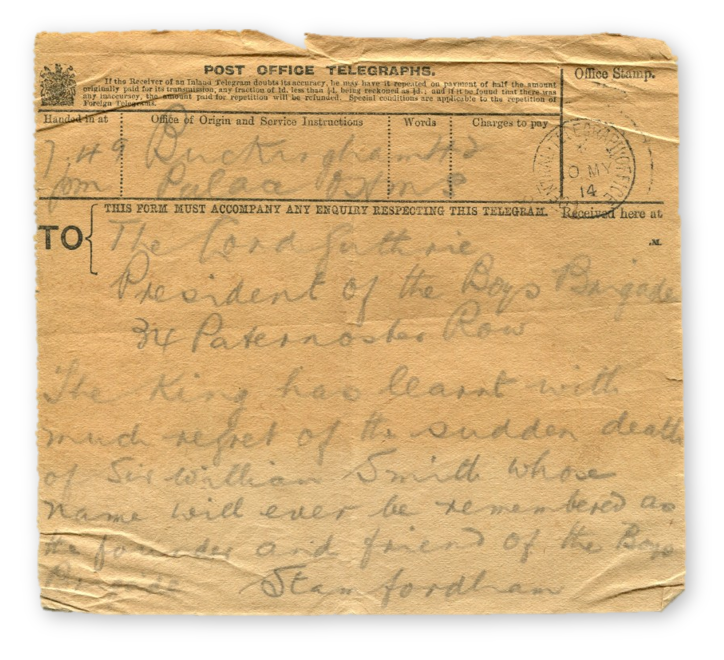 POST OFFICE TELEGRAPHS.
If the Receiver of an Inland Telegram doubts its accuracy, he may have it repeated on payment of half the amount
originally paid for its transmission, any fraction of 1d. less than ½d. being reckoned as ½d.; and if it be found that there was
any inaccuracy, the amount paid for repetition will be refunded. Special conditions are applicable to the repetition of
Foreign Telegrams.
Office Stamp.
Handed in at
Office of Origin and Service Instructions
Words
Charges to pay
7.49 Buckingham 42
pm Palace OHMS
CENTRAL TELEGRAPH OFFICE
MY
14
THIS FORM MUST ACCOMPANY ANY ENQUIRY RESPECTING THIS TELEGRAM. Received here at
TO The Lord Guthrie .M.
President of the Boys Brigade
34 Paternoster Row
The King has learnt with
much regret of the sudden death
of Sir William Smith whose
name will ever be remembered as
the founder and friend of the Boys
Brigade Stamfordham